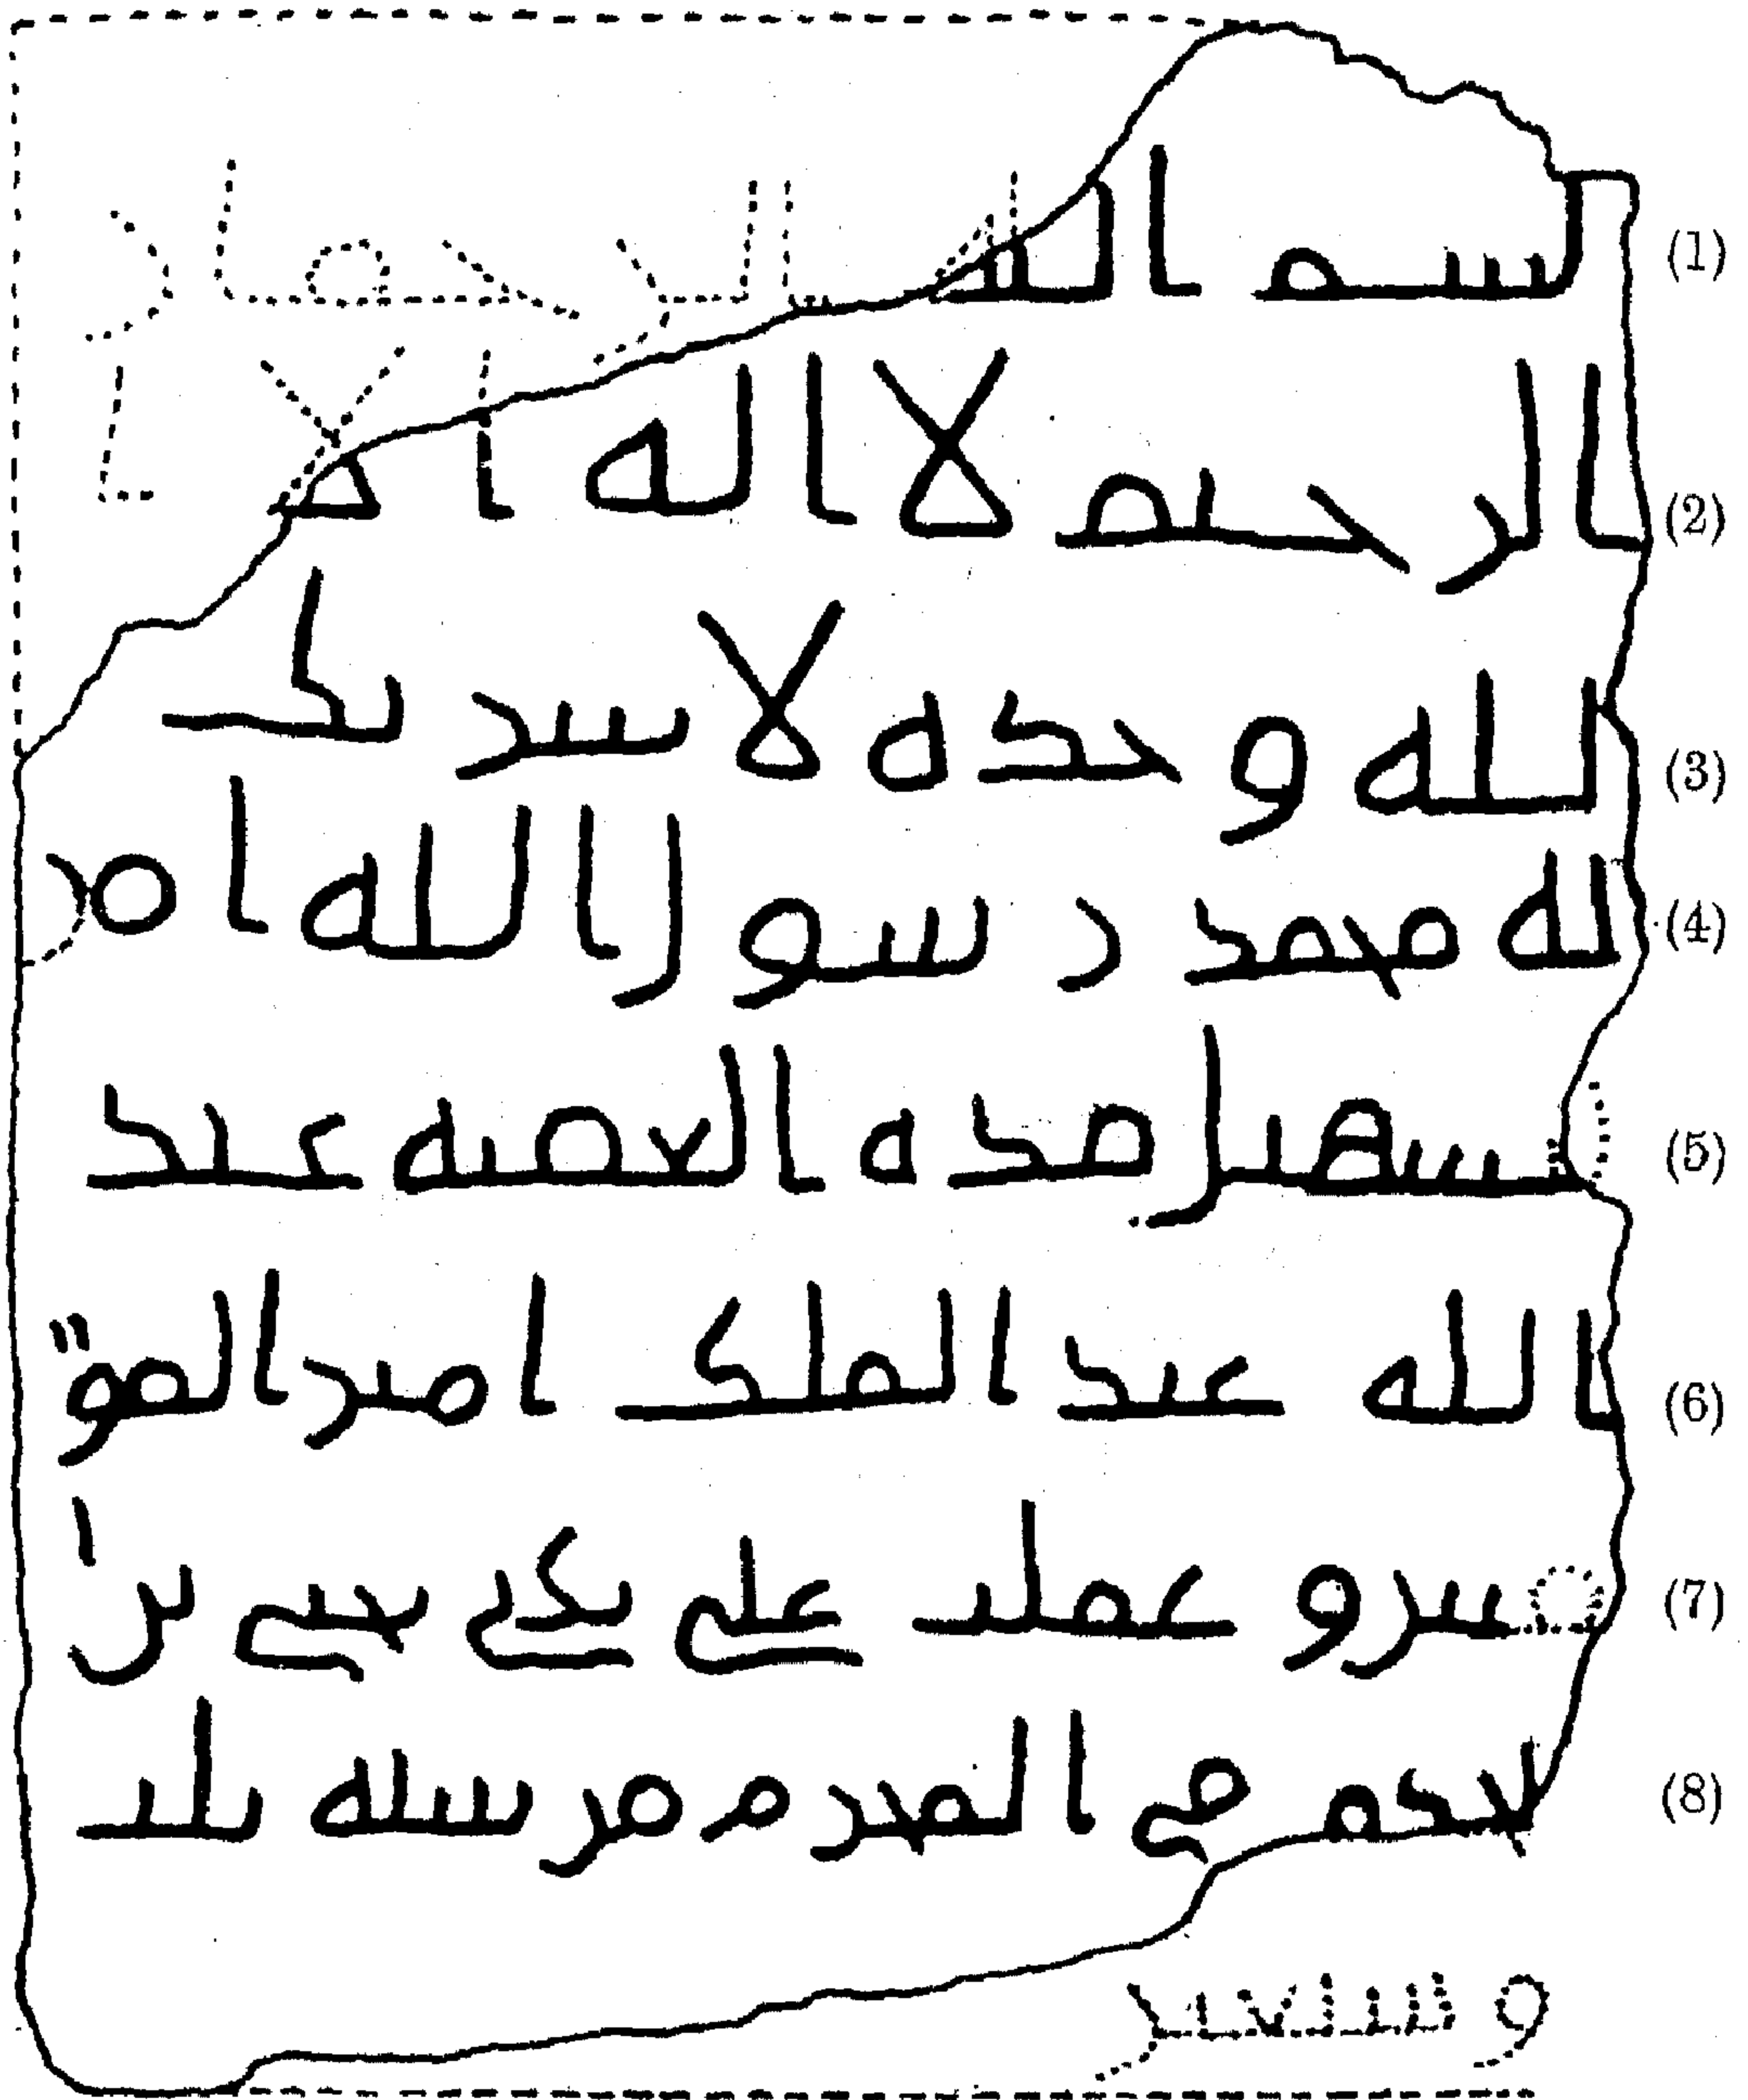 (1) بسم الله الرحمن
(2) الرحيم لا اله الا ا
(3) لله وحده لا شريك
(4) له محمد رسول الله امر
(5) بتسهيل هذه العقبه عبد
(6) الله عبد الملك امير المو
(7) منين وعملت على يدي يحيى بن ا
(8) لحكم في المحرم من سنه ثلث
وسبعين